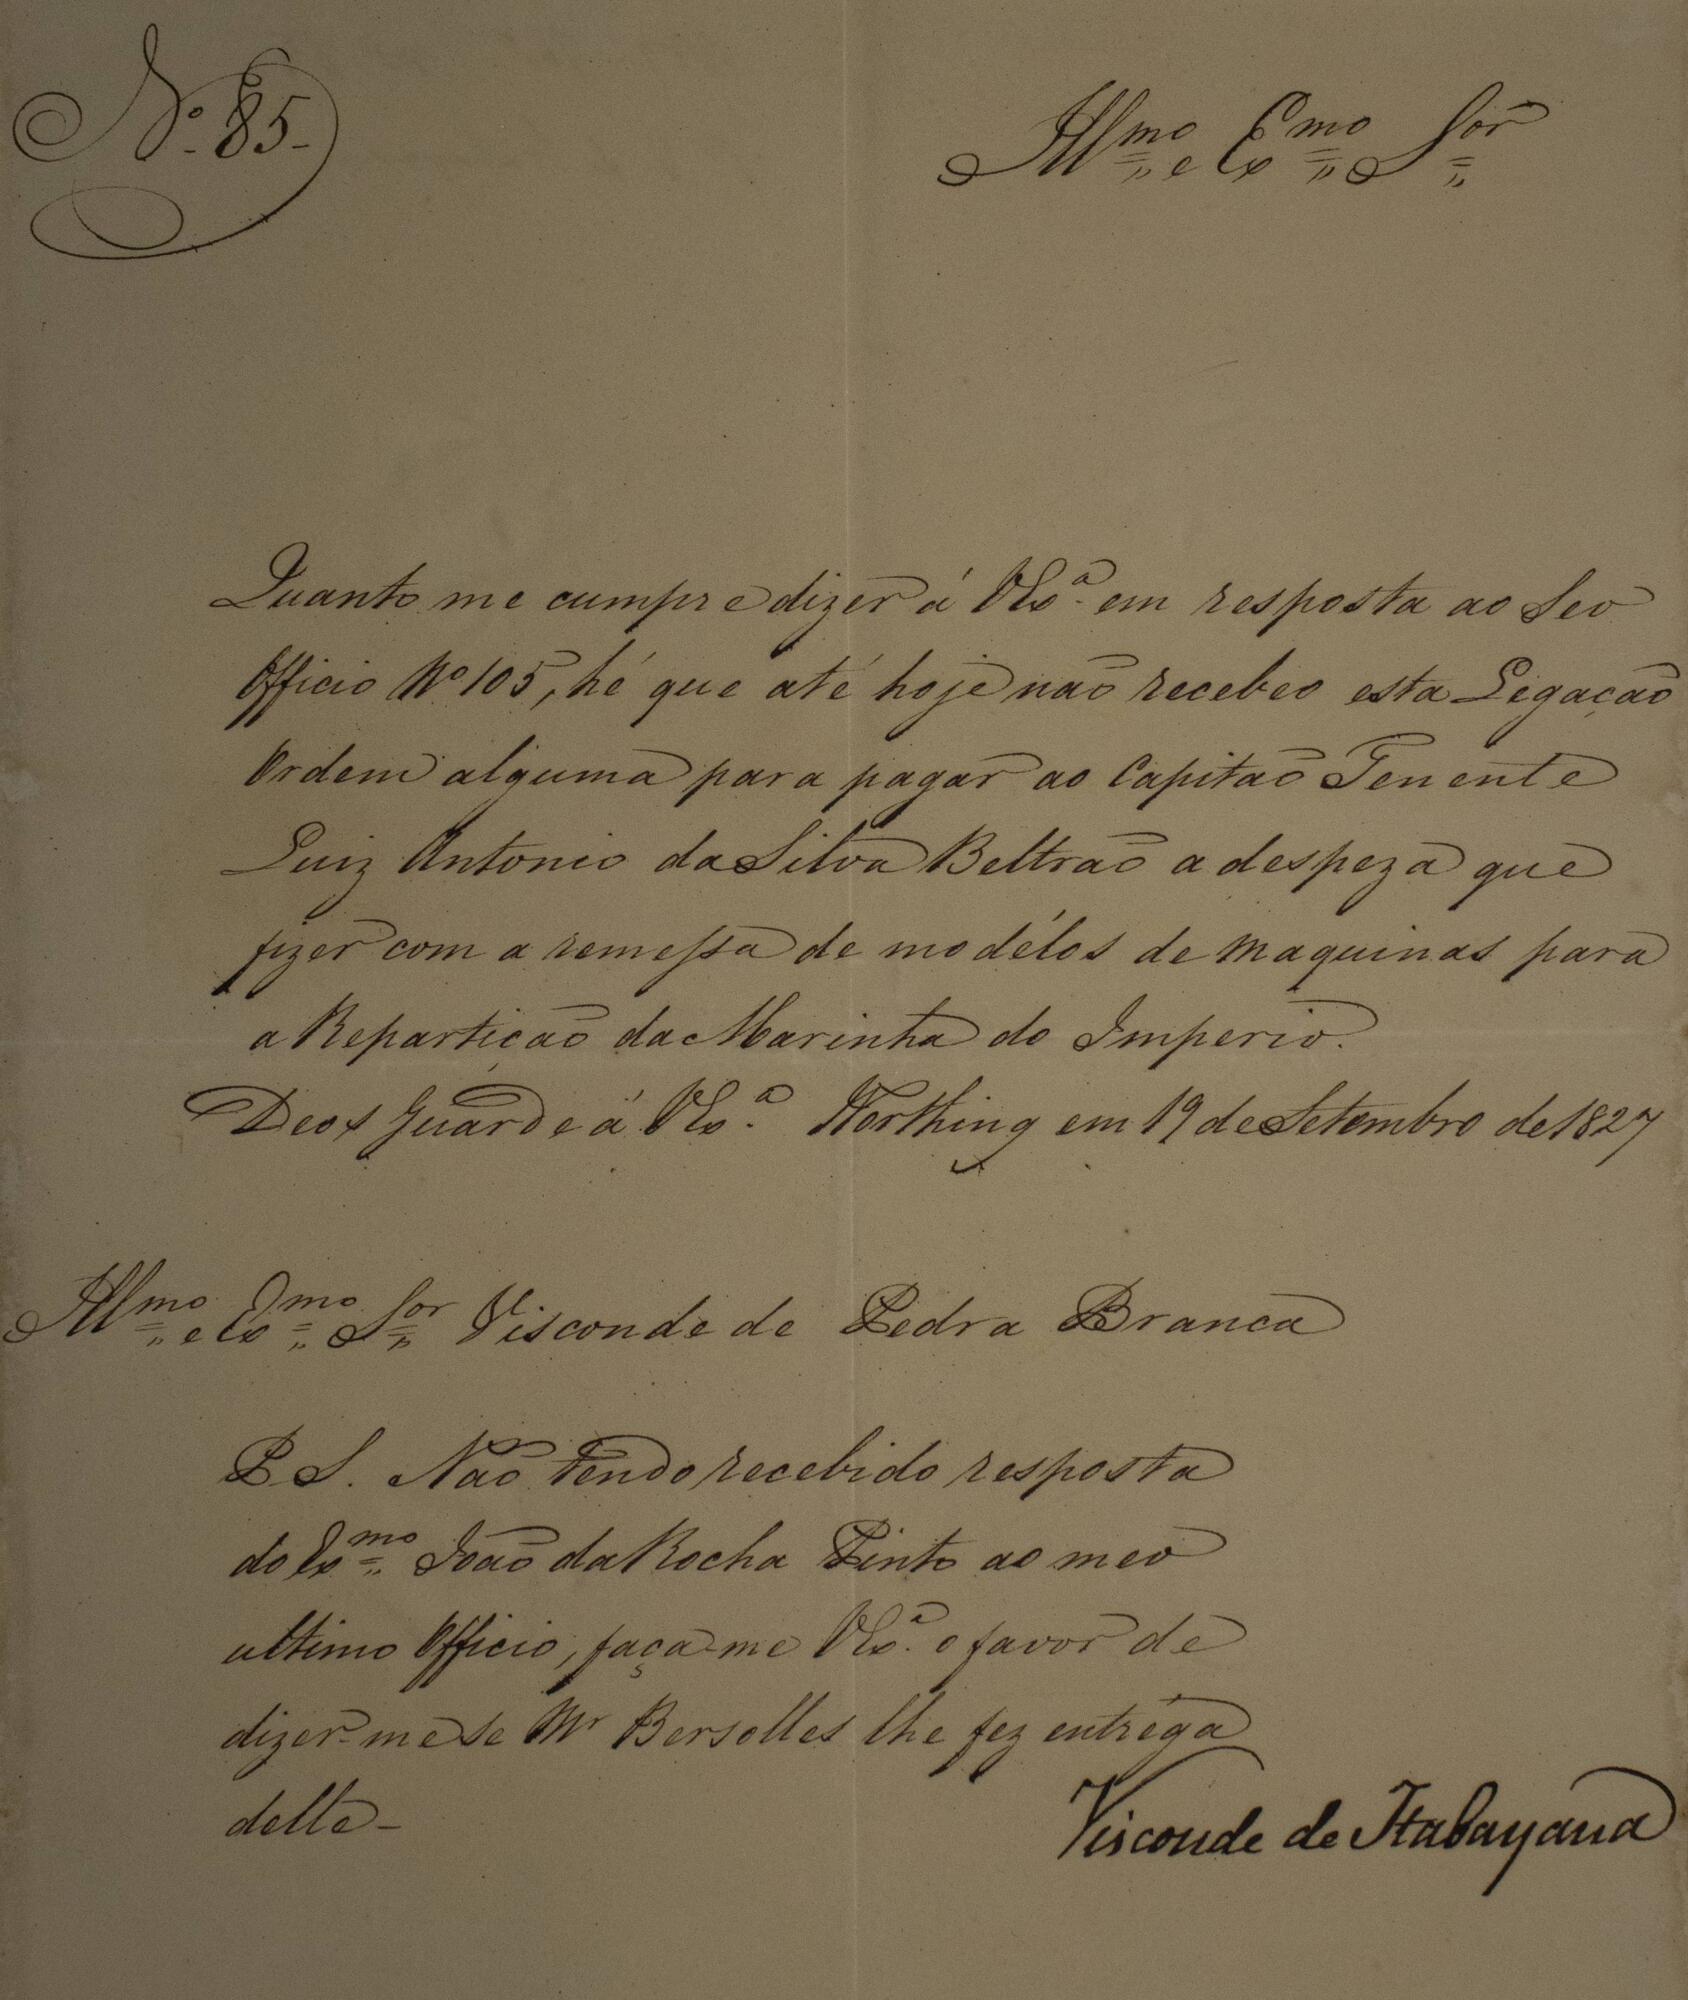 Nº 85-
Illmo e Exmo Sor
Quanto me cumpre dizer á VExª em resposta ao Seo
Officio Nº 105, hé que até hoje não recebeo esta Legação
Ordem alguma para pagar ao Capitão Tenente
Luiz Antonio da Silva Beltrão a despeza que
fizer com a remessa de modélos de maquinas para
a Repartição da Marinha do Imperio.
Deos Guarde á VExª Worthing em 19 de Setembro de 1827
Illmo e Exmo Sor Visconde de Pedra Branca
P.S. Não tendo recebido resposta
do Exmo João da Rocha Pinto ao meo
ultimo Officio, faça-me VExª o favor de
dizer-me se Mr Bersolles lhe fez entréga
delle-
Visconde de Itabayana